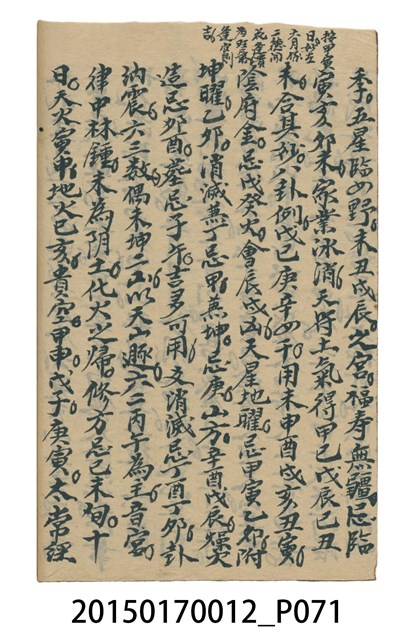 按甲庚
日妙在
六月修
二德同
花多實
為旺氣
蓬宮則
吉
季五星臨女野未丑戌辰之宮福寿無疆忌臨
寅亥卯未家業冰消天符土氣得甲己戊辰己丑
未合其秋八卦例戊己庚辛女干用未申酉戌亥丑寅
陰府金忌戊癸火會辰戌凶天星地曜忌甲寅乙卯附
坤曜乙卯消滅兼丁忌甲兼坤忌庚山方辛酉戊辰爆火
造忌卯酉葬忌子午吉多可用爻消滅忌丁酉丁卯卦
納震六三數偶未坤二山以天山遯六二丙午為主音宮
律中林鍾未為阴土化火之歸修方忌己未旬十
日天火寅申地火巳亥貴宮甲申戊子庚寅太常經
20150170012_P071